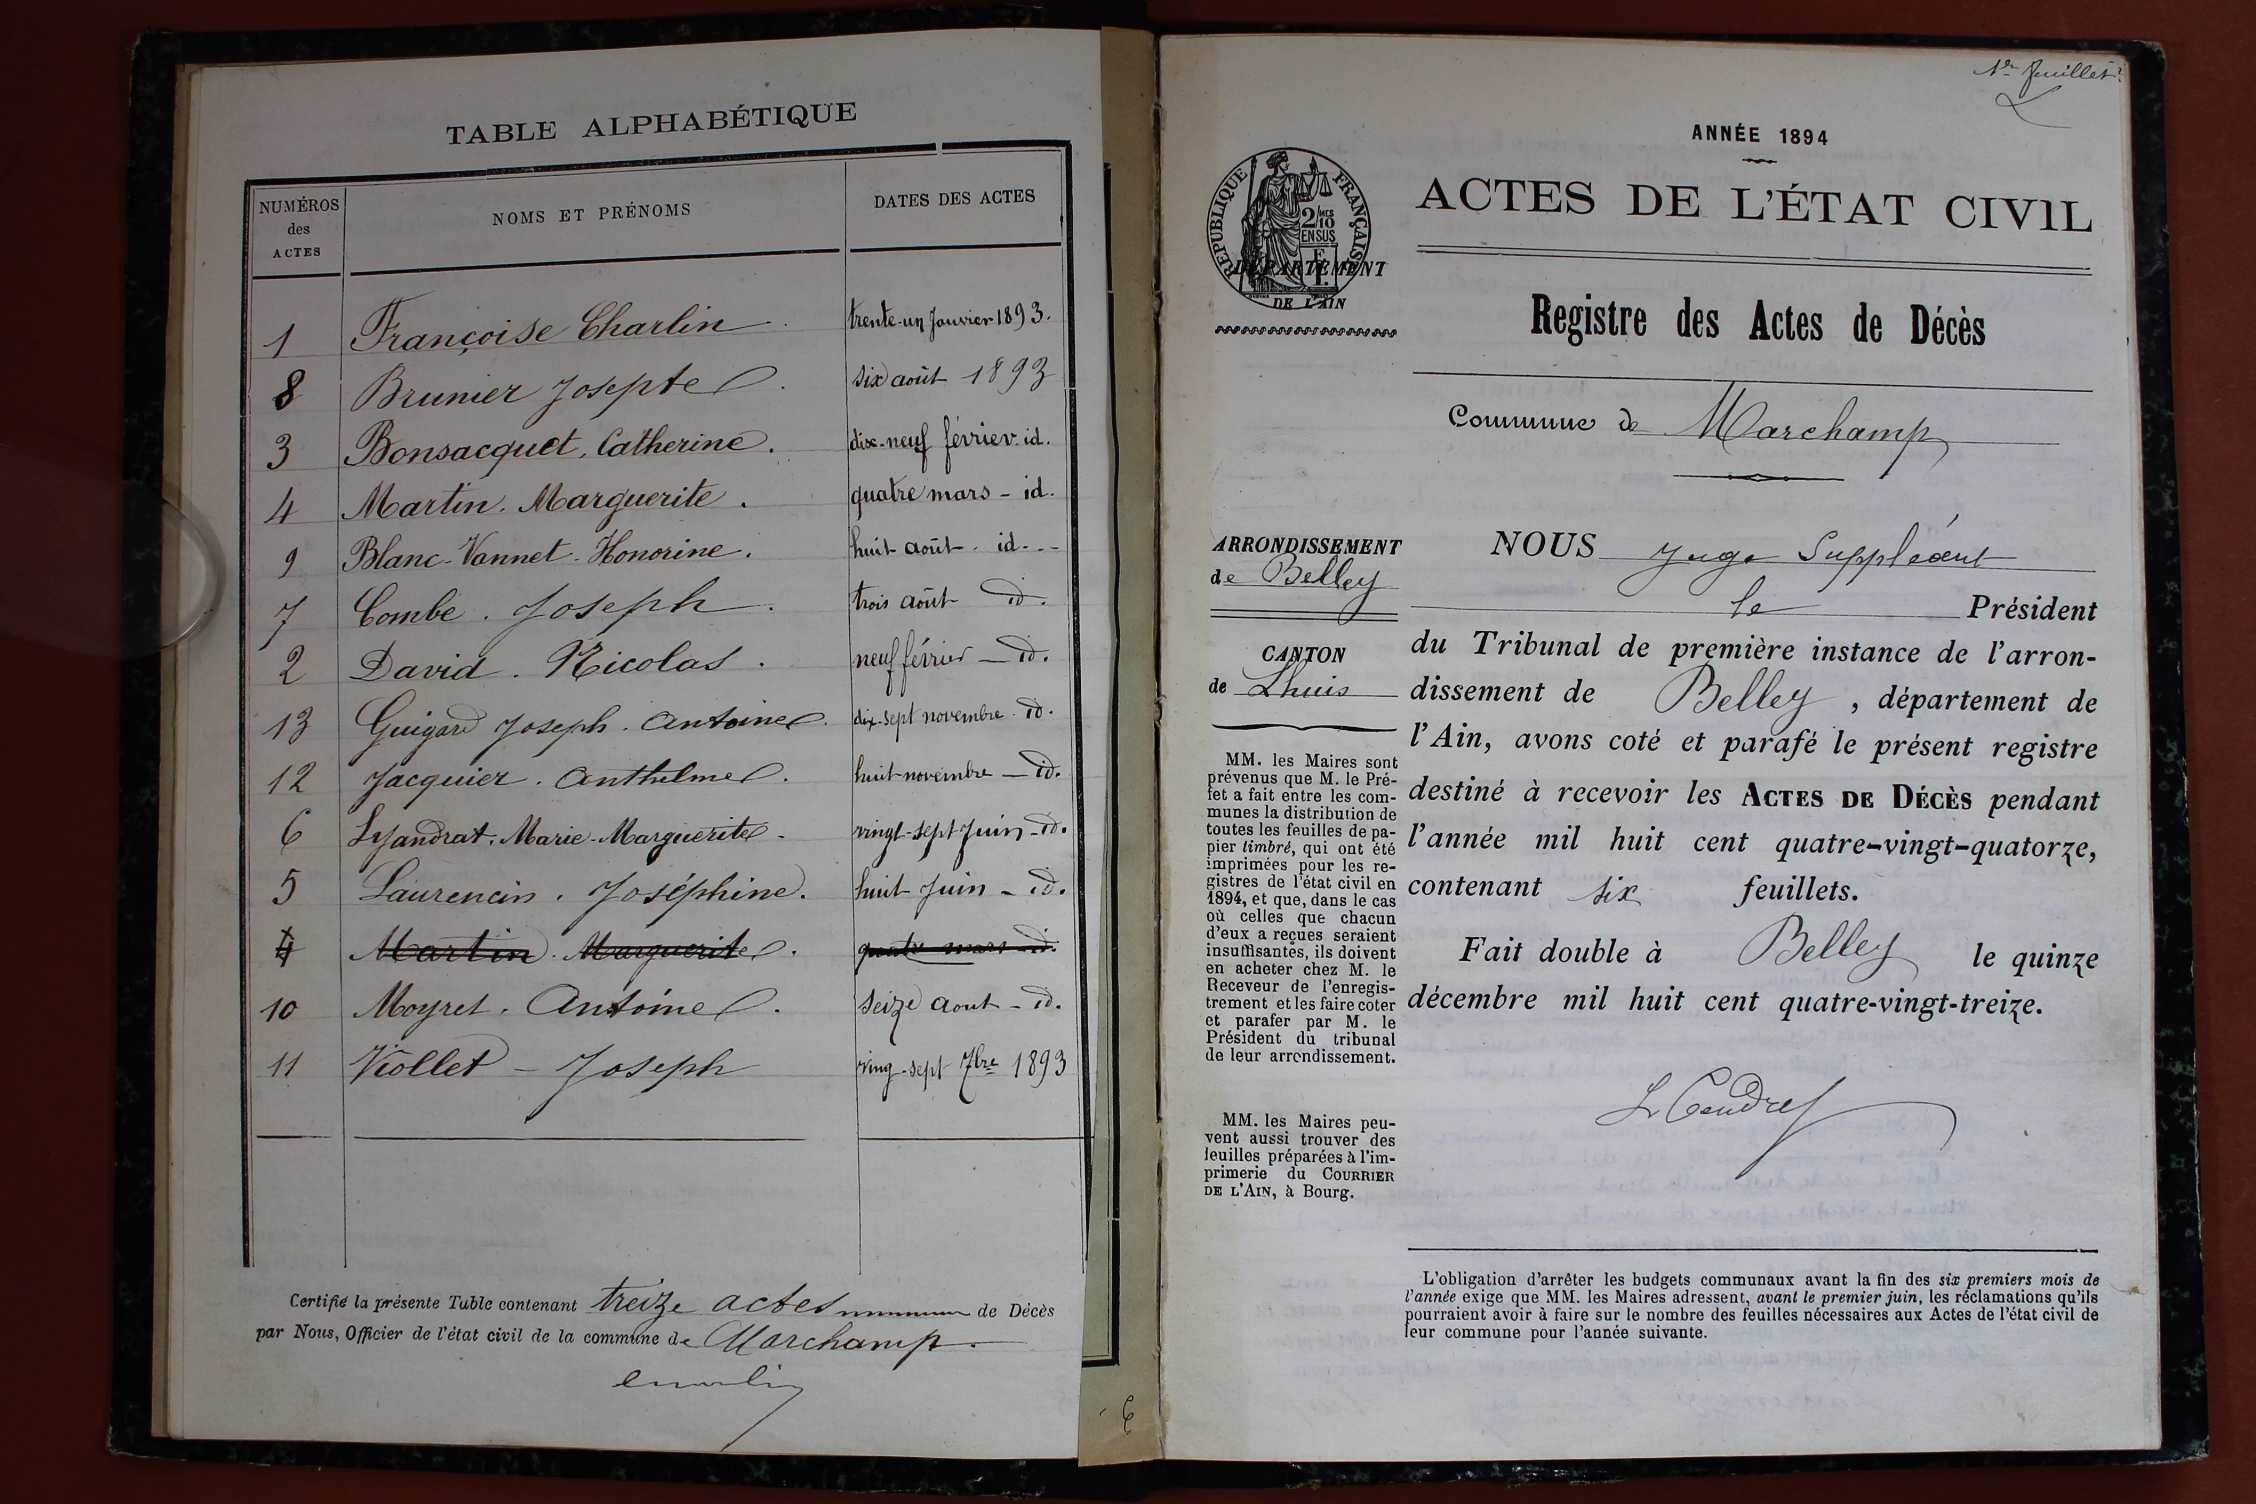 TABLE ALPHABÉTIQUE
NUMÉROS des ACTES NOMS ET PRÉNOMS DATES DES ACTES
1 Françoise Charlin trente-un Janvier 1893.
8 Brunier Josepte six août 1893
3 Bonsacquet, Catherine. dix-neuf février id.
4 Martin. Marguerite. quatre mars - id.
9 Blanc-Vannet. Honorine. huit août. id.
7 Combe. Joseph. trois août id.
2 David. Nicolas. neuf février - id.
13 Guigard Joseph. Antoine. dix-sept novembre. id.
12 Jacquier. Anthelme. huit novembre - id.
6 Lyandrat. Marie-Marguerite. vingt-sept Juin - id.
5 Laurencin. Joséphine. huit Juin - id.
4 Martin. Marguerite. quatre mars id.
10 Moyret. Antoine. seize aout - id.
11 Viollet - Joseph ving-sept 7bre 1893
Certifié la présente Table contenant treize actes de Décès
par Nous, Officier de l'état civil de la commune de Marchamp.
6
1er feuillet
ANNÉE 1894
RÉPUBLIQUE FRANÇAISE
2/10MES EN SUS
DÉPARTEMENT
DE L'AIN
ACTES DE L'ÉTAT CIVIL
Registre des Actes de Décès
Commune de Marchamp
ARRONDISSEMENT
de Belley
CANTON
de Lhuis
MM. les Maires sont
prévenus que M. le Pré-
fet a fait entre les com-
munes la distribution de
toutes les feuilles de pa-
pier timbré, qui ont été
imprimées pour les re-
gistres de l'état civil en
1894, et que, dans le cas
où celles que chacun
d'eux a reçues seraient
insuffisantes, ils doivent
en acheter chez M. le
Receveur de l'enregis-
trement et les faire coter
et parafer par M. le
Président du tribunal
de leur arrondissement.
MM. les Maires peu-
vent aussi trouver des
feuilles préparées à l'im-
primerie du COURRIER
DE L'AIN, à Bourg.
NOUS Juge Suppléant
le Président
du Tribunal de première instance de l'arron-
dissement de Belley, département de
l'Ain, avons coté et parafé le présent registre
destiné à recevoir les ACTES DE DÉCÈS pendant
l'année mil huit cent quatre-vingt-quatorze,
contenant six feuillets.
Fait double à Belley le quinze
décembre mil huit cent quatre-vingt-treize.
L'obligation d'arrêter les budgets communaux avant la fin des six premiers mois de
l'année exige que MM. les Maires adressent, avant le premier juin, les réclamations qu'ils
pourraient avoir à faire sur le nombre des feuilles nécessaires aux Actes de l'état civil de
leur commune pour l'année suivante.